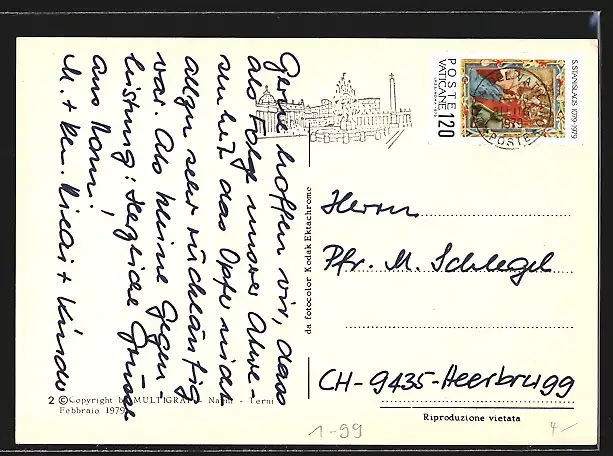 Gerne hoffen wir, dass
als Folge unserer Abwe-
senheit das Opfer nicht
allzu sehr rückläufig
war. Als kleine Gegen-
leistung: Herzliche Grüsse
aus Rom!
M. + Kinder
POSTE
VATICANE 120
S. STANISLAUS 1079-1979
POSTE
da fotocolor Kodak Ektachrome
Herrn
Pfr. M. Schlegel
CH-9435-Heerbrugg
Riproduzione vietata
2 © Copyright by MULTIGRAF - Narni - Terni
Febbraio 1979
1-99
4.-